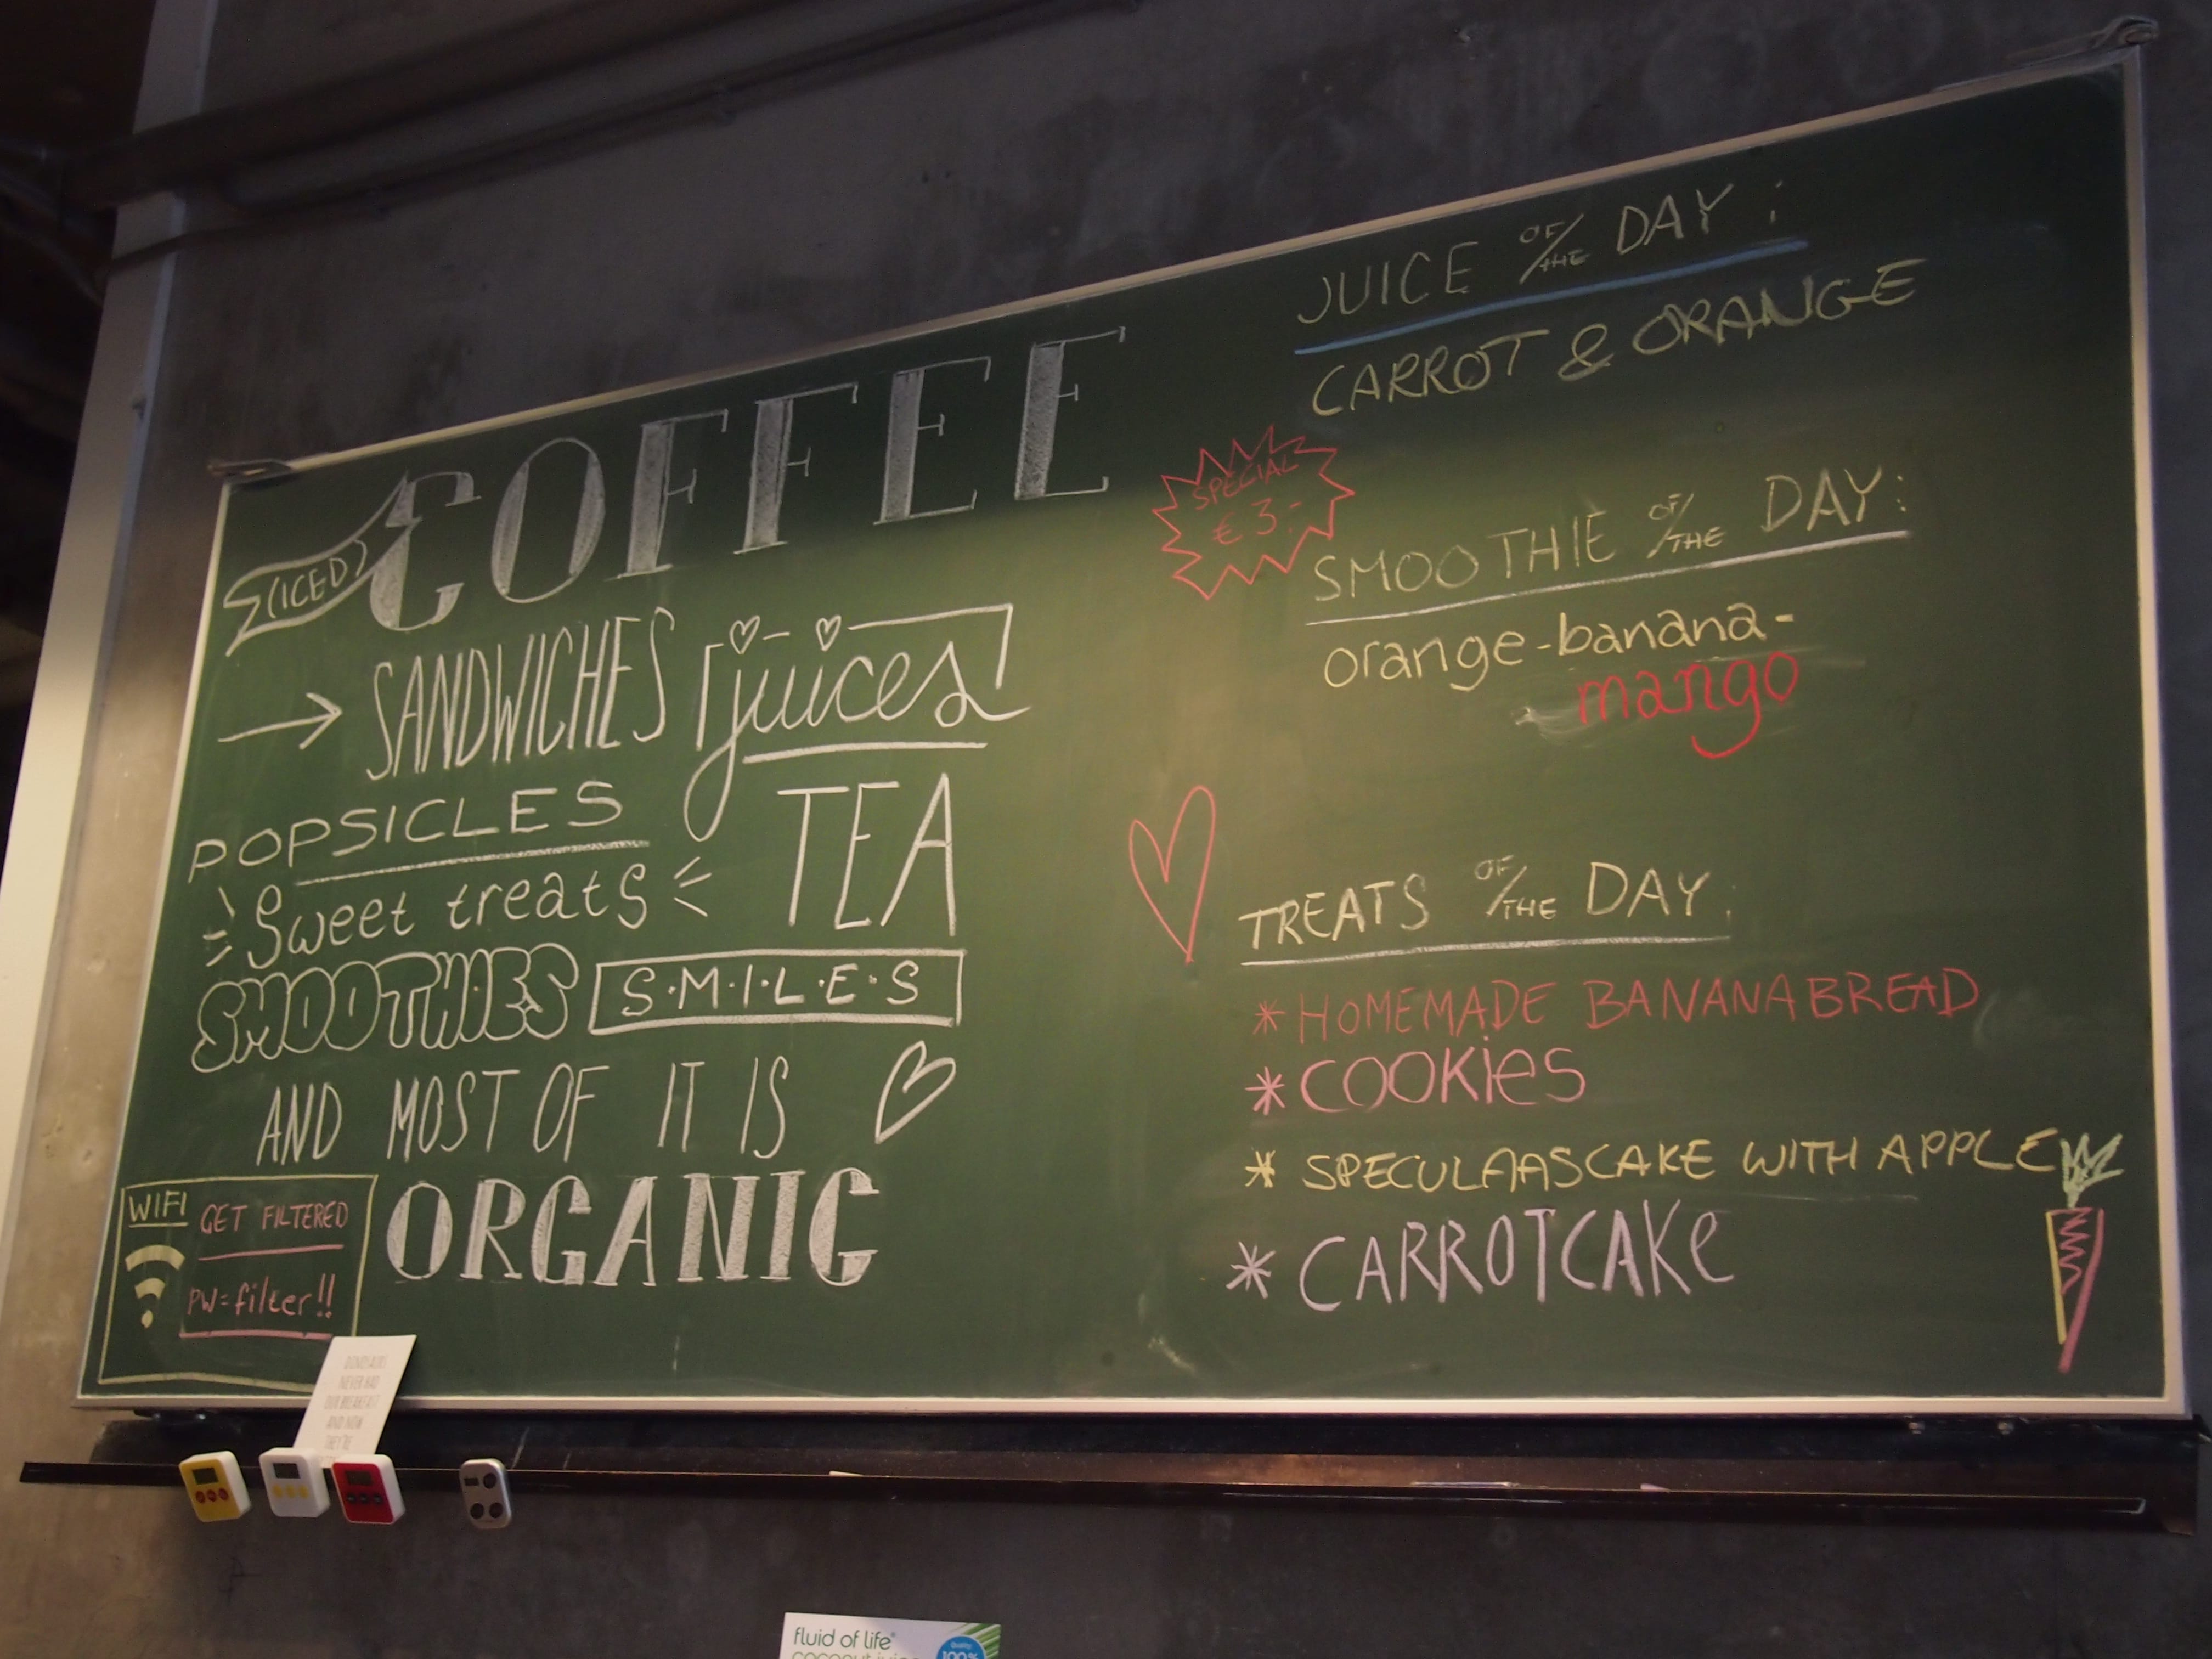 (ICED)
COFFEE
SANDWICHES juices
POPSICLES
TEA
Sweet treats
SMOOTHIES S.M.I.L.E.S
AND MOST OF IT IS
ORGANIC
WIFI GET FILTERED
PW=filter!!
JUICE OF/THE DAY:
CARROT & ORANGE
SPECIAL
€3.-
SMOOTHIE OF/THE DAY:
orange-banana-
mango
TREATS OF/THE DAY:
* HOMEMADE BANANABREAD
* COOKIES
* SPECULAASCAKE WITH APPLE
* CARROTCAKE
DINOSAURS
NEVER HAD
OUR BREAKFAST
AND NOW
THEY'RE
fluid of life
coconut juice
Quality
100%